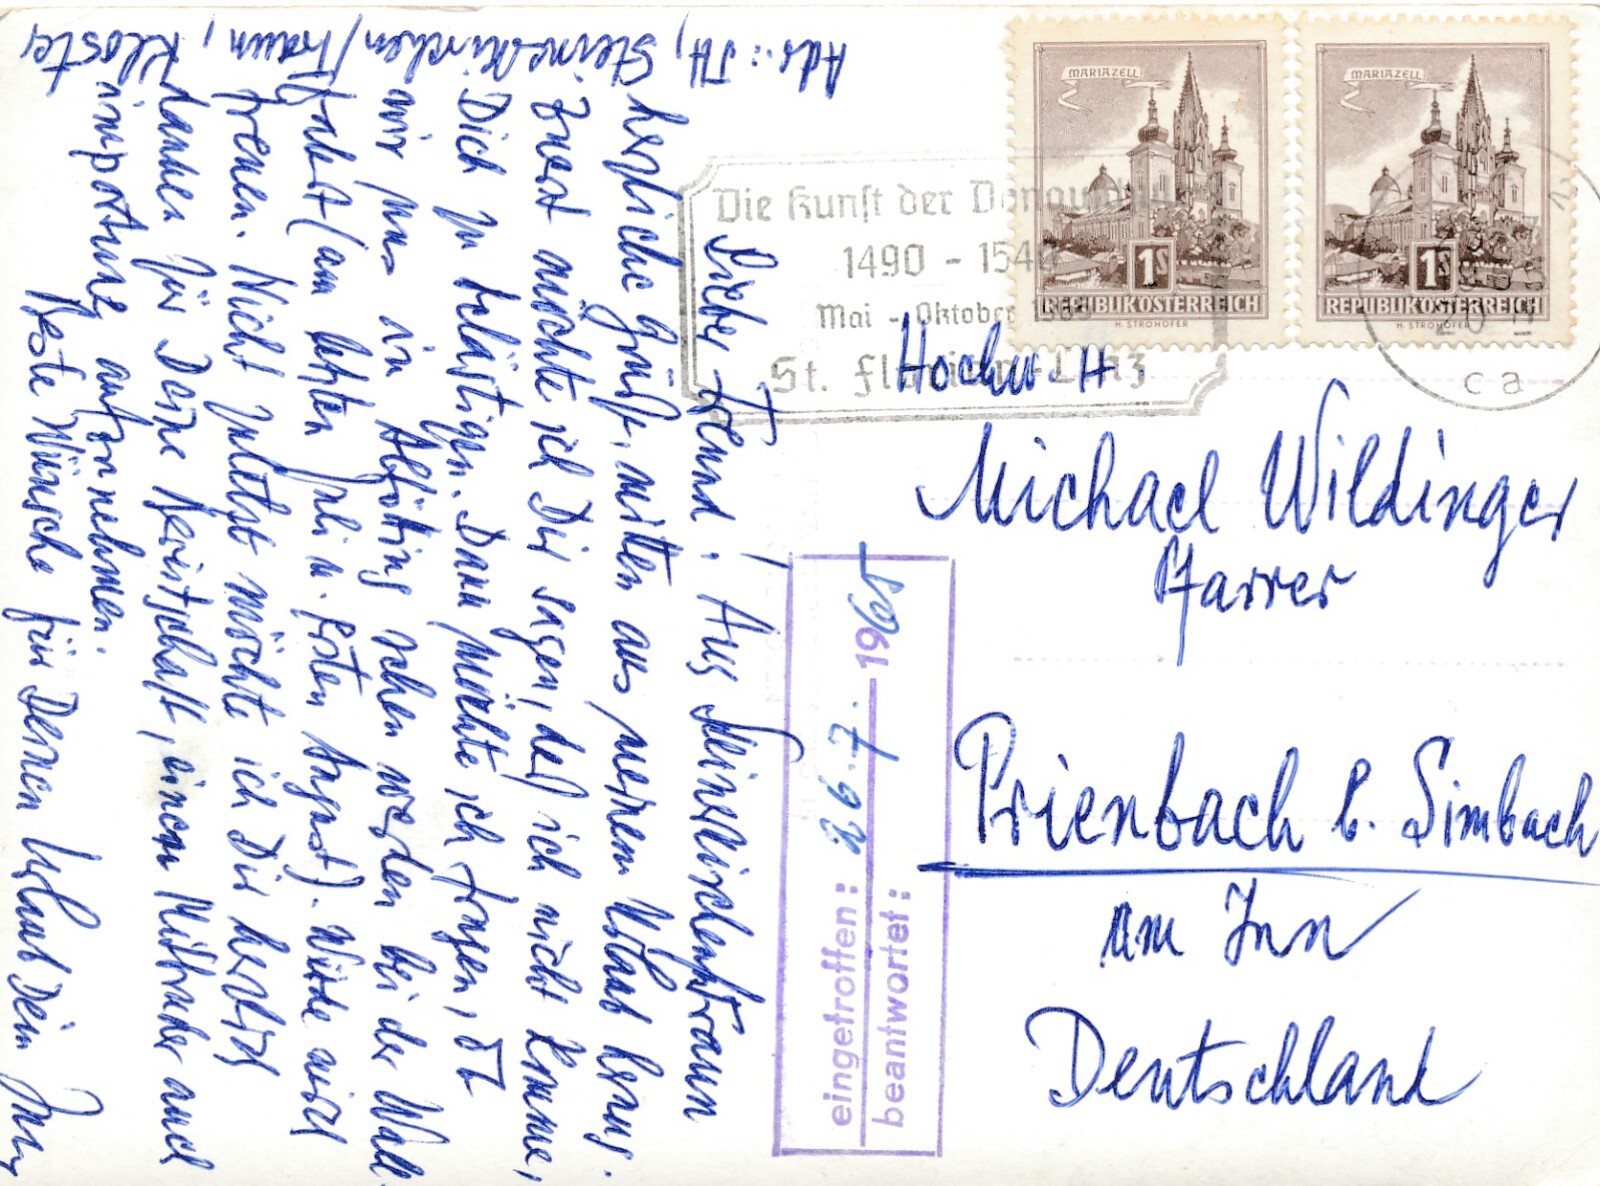 Adr.: JH, Steinerkirchen/Traun, Kloster
Lieber Freund! Aus Steinerkirchen/Traun
herzliche Grüße, mitten aus meinem Urlaub heraus.
Zuerst möchte ich Dir sagen, daß ich nicht komme,
Dich zu belästigen. Dann möchte ich fragen, ob
wir uns in Altötting sehen werden bei der Wall-
fahrt (am letzten Juli u. ersten August). Würde mich
freuen. Nicht zuletzt möchte ich Dir herzlich
danken für Deine Bereitschaft, einen Mitbruder auch
aufzunehmen.
Beste Wünsche für Deinen Urlaub Dein
MARIAZELL
1S
REPUBLIK ÖSTERREICH
H. STROHOFER
MARIAZELL
1S
REPUBLIK ÖSTERREICH
H. STROHOFER
Die Kunst der Donauschule
1490 - 1540
Mai - Oktober 1965
St. Florian - Linz
ca
Hochw. H.
Michael Wildinger
Pfarrer
Prienbach b. Simbach
am Inn
Deutschland
eingetroffen: 29.7. 1965
beantwortet: